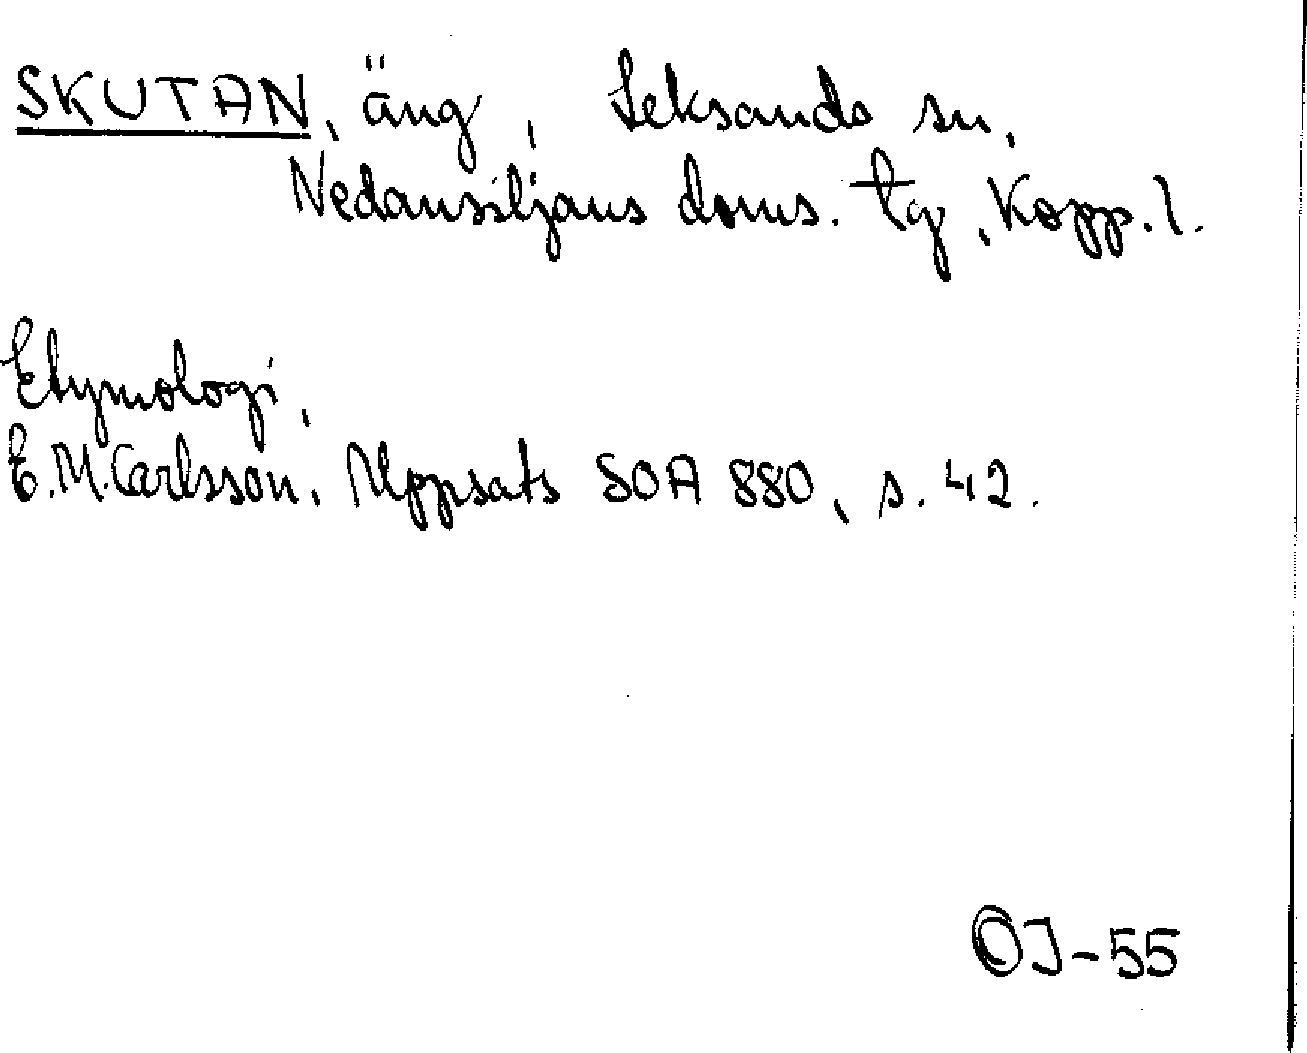 SKUTAN, äng, Leksands sn,
Nedansiljans doms. tg, Kopp. l.
Etymologi,
E. M. Carlsson, Uppsats SOA 880, s. 42.
OJ-55